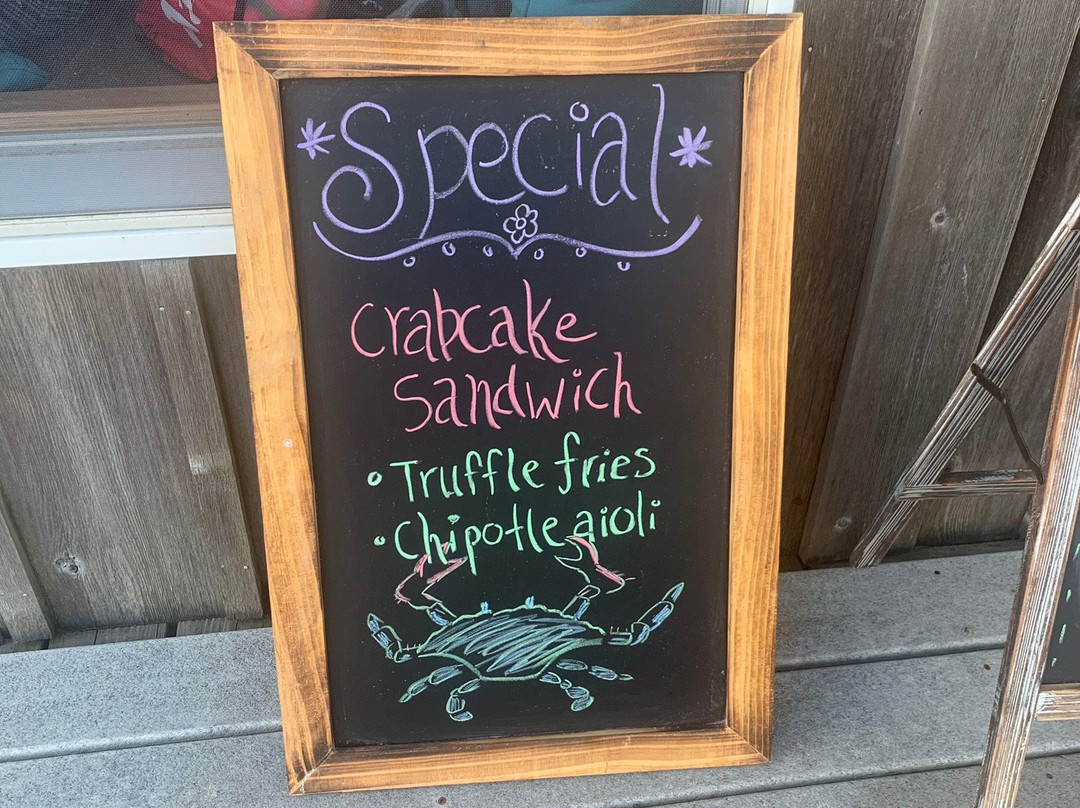 * Special *
Crabcake
Sandwich
• Truffle fries
• Chipotle aioli